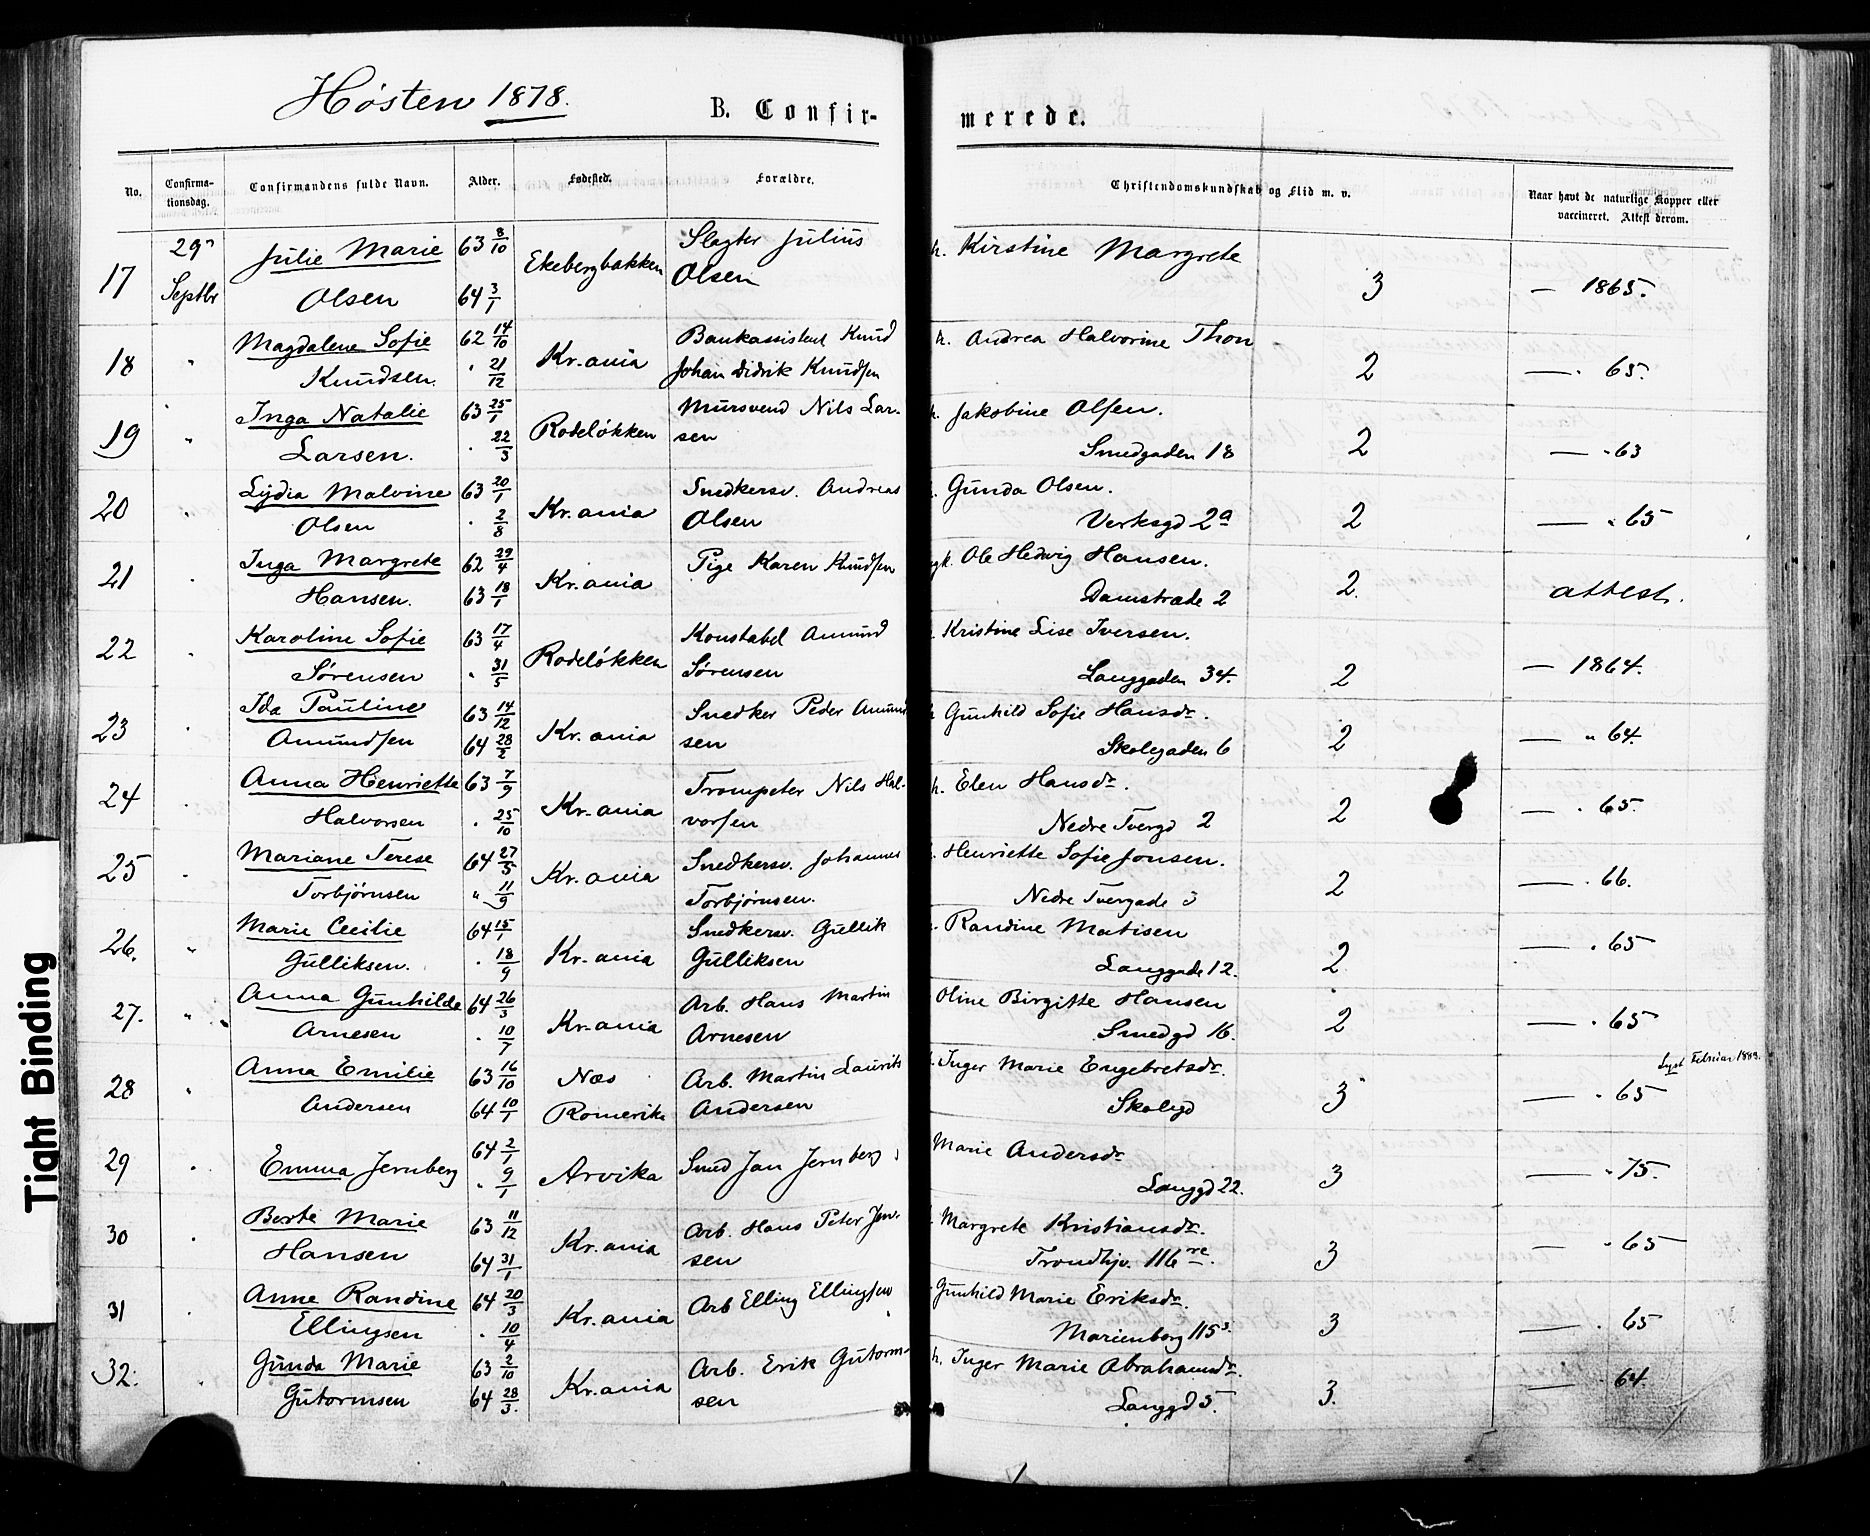 Høsten 1878.
B. Confir-
merede.
No.
Confirma-
tionsdag.
Confirmandens fulde Navn.
Alder.
Fødested.
Forældre.
Christendomskundskab og Flid m. v.
Naar havt de naturlige Kopper eller
vaccineret. Attest derom.
17 29 Septbr Julie Marie Olsen 63 8/10 64 3/1 Ekebergbakken Slagter Julius Olsen h. Kirstine Margrete 3 — 1865.
18 " Magdalene Sofie Knudsen. 62 14/10 " 21/12 Kr.ania Bankassistent Knud Johan Didrik Knudsen h. Andrea Halvorine Thon 2 — " 65.
19 " Inga Natalie Larsen. 63 25/1 " 22/3 Rodeløkken Mursvend Nils Larsen h. Jakobine Olsen. Smedgaden 18 2 — " 63
20 " Lydia Malvine Olsen 63 20/1 " 2/8 Kr.ania Snedkersv. Andreas Olsen Gunda Olsen. Verksgd 2a 2 — " 65
21 " Inga Margrete Hansen. 62 29/4 63 18/1 Kr.ania Pige Karen Knudsen gk. Ole Hedvig Hansen. Damstræde 2 2. attest.
22 " Karoline Sofie Sørensen 63 17/4 " 31/5 Rodeløkken Konstabel Amund Sørensen Kristine Lise Iversen. Langgaden 34. 2 — 1864.
23 " Ida Pauline Amundsen 63 14/12 64 28/2 Kr.ania Snedker Peder Amundsen Gunhild Sofie Hansdr. Skolegaden 6 2 — " 64.
24 " Anna Henriette Halvorsen 63 7/9 " 25/10 Kr.ania Trompeter Nils Halvorsen h. Elen Hansdr. Nedre Tvergd 2 2 — " 65.
25 " Mariane Terese Torbjørnsen 64 27/5 " 11/9 Kr.ania Snedkersv. Johannes Torbjørnsen. Henriette Sofie Jonsen. Nedre Tvergade 3 2 — " 66.
26. " Marie Cecilie Gulliksen. 64 15/1 " 18/9 Kr.ania Snedkersv. Gullik Gulliksen Randine Matisen Langgade 12. 2 — " 65
27. " Anna Gunhilde Arnesen 64 26/3 " 10/7 Kr.ania Arb. Hans Martin Arnesen Oline Birgitte Hansen Smedgd 16. 2 — " 65
28 " Anna Emilie Andersen 63 16/10 64 10/1 Næs Romerike Arb. Martin Laurits Andersen Inger Marie Engebretsdr. Skolegd 3 — " 65 Lyst Februar 1889.
29 " Emma Jernberg 64 2/1 " 9/1 Arvika Smed Jan Jernberg Marie Andersdr Langgd 22. 3 — " 75.
30 " Berte Marie Hansen 63 11/12 64 31/1 Kr.ania Arb. Hans Peter Jensen Margrete Kristiansdr. Trondhjv. 116 re. 3 — " 65
31 " Anne Randine Ellingsen 64 20/3 " 10/4 Kr.ania Arb Elling Ellingsen Gunhild Marie Eriksdr. Marienborg 115 3 — " 65
32. " Gunda Marie Gutormsen 63 2/10 64 28/3. Kr.ania Arb. Erik Gutormsen h. Inger Marie Abrahamsdr. Langgd 5. 3. — 64.
Tight Binding